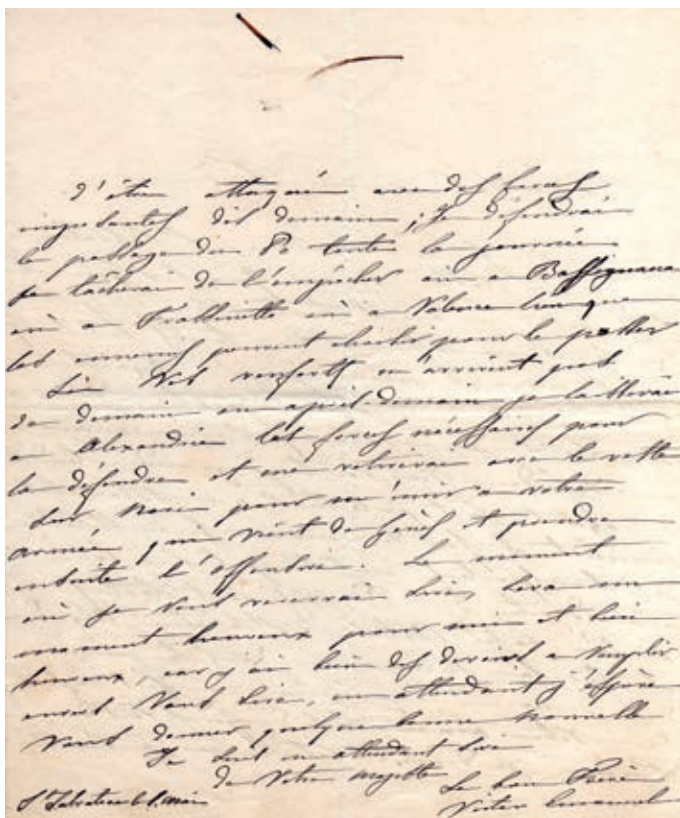 d'être attaqué avec des forces
imposantes dès demain; Je défendrai
le passage du Pô toute la journée
je tâcherai de l'empêcher où a Bassignana
où a Frassinetto où a Valence lieux que
les ennemis peuvent choisir pour le passer
Si Vos renforts n'arrivent pas
de demain en après-demain je laisserai
a Alexandrie les forces nécessaires pour
la défendre et me retirerai avec le reste
sur Novi pour m'unir a votre
armée, qui vient de Gênes et prendre
ensuite l'offensive. Le moment
où je Vous reverrai Sire, sera un
moment heureux pour moi et bien
heureux, car j'ai bien des devoirs a remplir
envers Vous Sire, en attendant j'espère
Vous donner quelque bonne nouvelle
Je suis en attendant Sire
de Votre majesté
Le bon Frère
S. Salvatore le 1. Mai
Victor Emmanuel